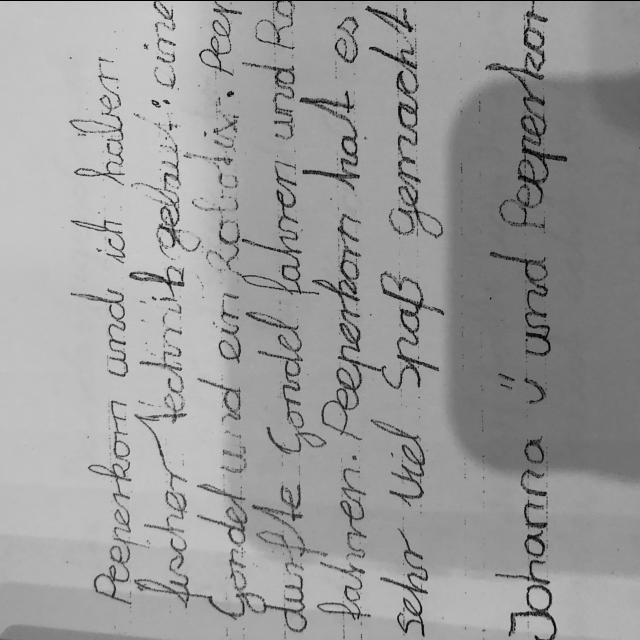 Peeperkorn und ich haben
fischer technik gebaut: eine
Gondel und ein Robotix. Peep
durfte Gondel fahren und Ro
fahren. Peeperkorn hat es
sehr viel Spaß gemacht
Johanna Ü und Peeperkor